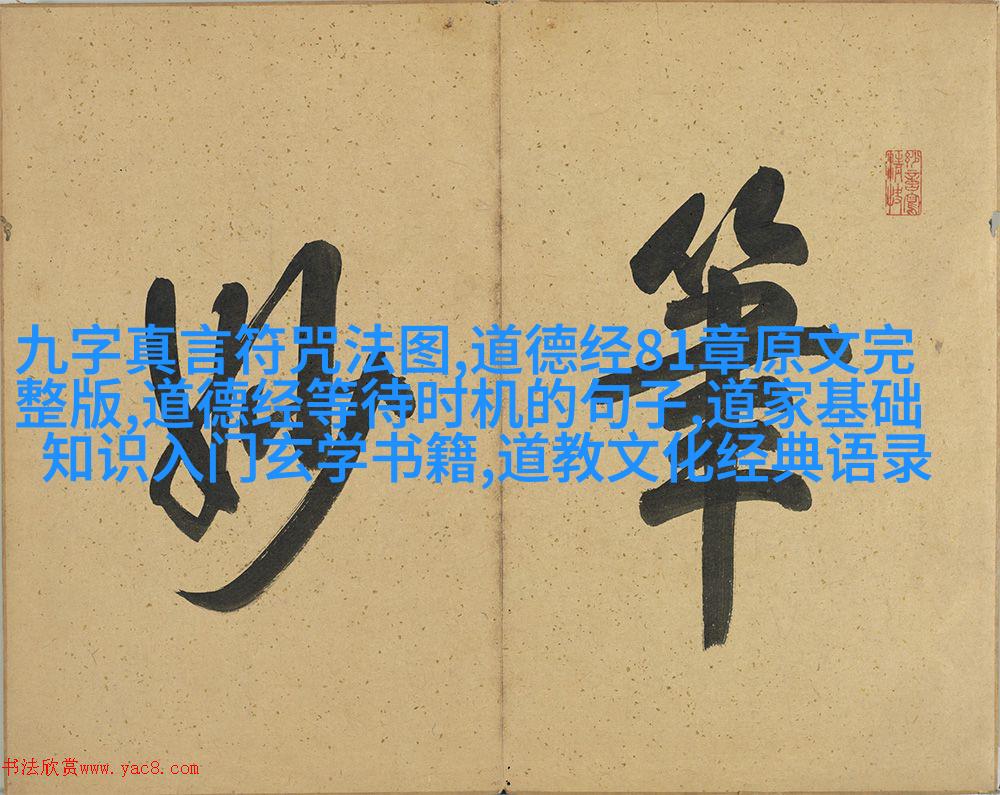 筆
妙
九字真言符咒法图,道德经81章原文完
整版,道德经等待时机的句子,道家基础
知识入门玄学书籍,道教文化经典语录
书法欣赏www.yac8.com